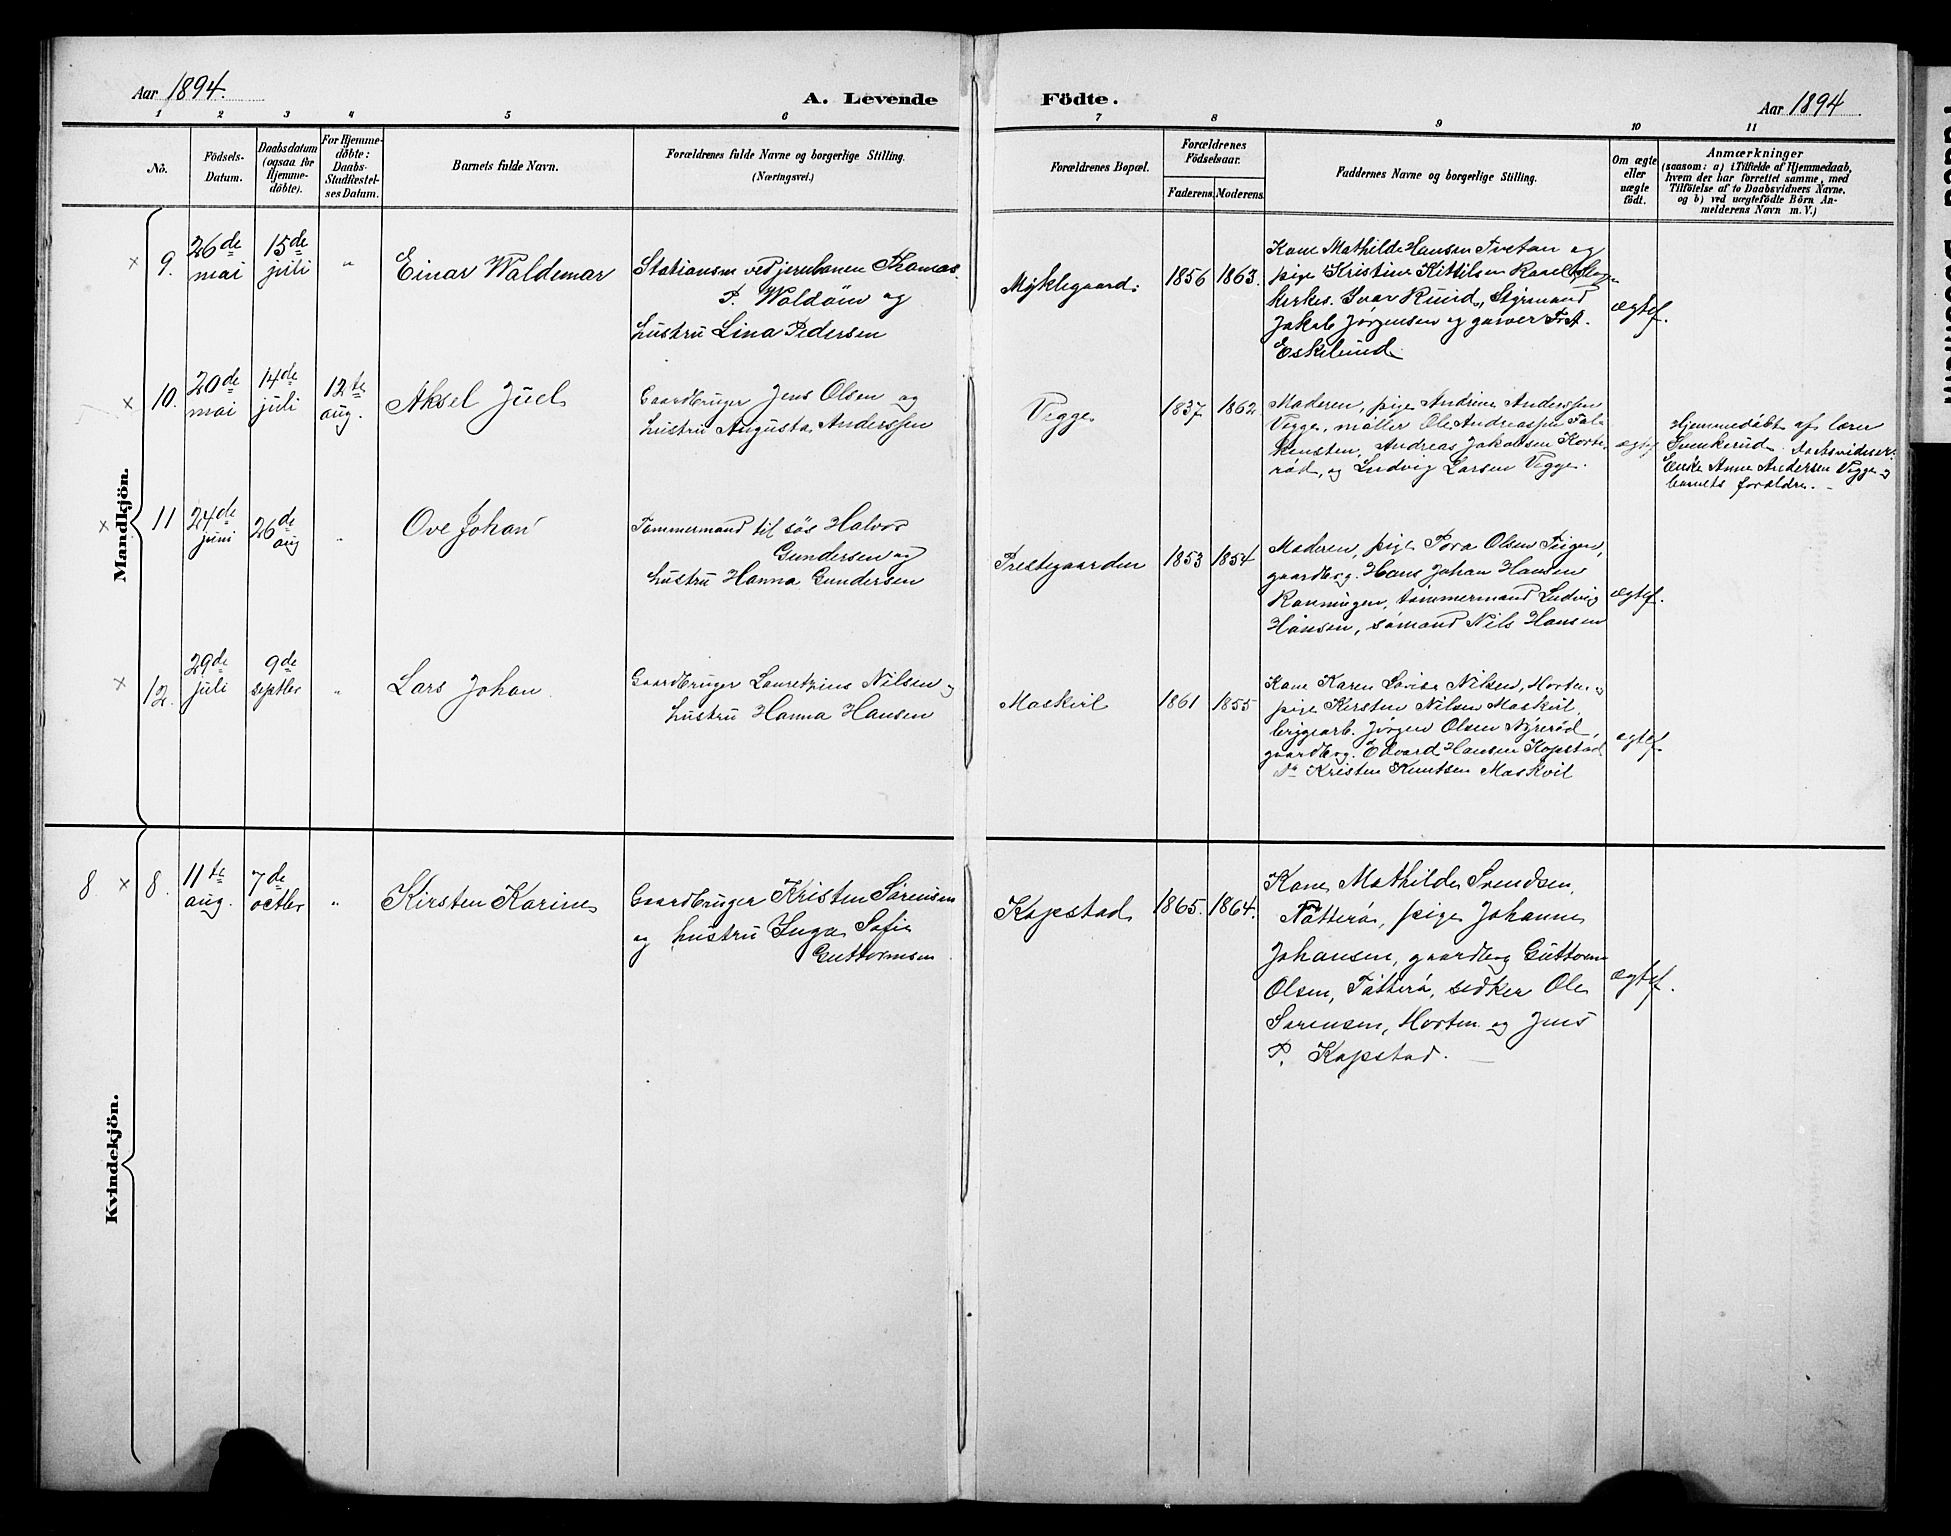 Aar 1894.
A. Levende Födte.
Aar 1894
1 2 3 4 5 6 7 8 9 10 11
No.
Födsels-
Datum.
Daabsdatum
(ogsaa for
Hjemme-
döbte).
For Hjemme-
döbte:
Daabs-
Stadfæstel-
ses Datum.
Barnets fulde Navn.
Forældrenes fulde Navne og borgerlige Stilling.
(Næringsvei.)
Forældrenes Bopæl.
Forældrenes
Födselsaar.
Faderens. Moderens.
Faddernes Navne og borgerlige Stilling.
Om ægte
eller
uægte
födt.
Anmærkninger
(saasom: a) i Tilfælde af Hjemmedaab,
hvem der har forrettet samme, med
Tilföielse af to Daabsvidners Navne,
og b) ved uægtefödte Börn An-
melderens Navn m. V.)
Mandkjön.
× 9.
26de
mai
15de
juli
"
Einar Waldemar
Stationsm ved jernbanen Thomas
P. Woldøm og
hustru Lina Pedersen
Myklegaard.
1856 1863.
Kone Mathilde Hansen Tvetan og
pige Kristine Kittilsen
kirkes. Ivar Ruud, Styrmand
Jakob Jørgensen og garver Fr A.
Eskelund
ægtef.
× 10.
20de
mai
14de
juli
12te
aug.
Aksel Juel
Gaardbruger Jens Olsen og
hustru Augusta Anderssen
Vegge
1837 1862
Moderen, pige Andrine Anderssen
Vegge, møller Ole Andreassen Fal-
kensten, Andreas Jakobsen Korte-
rød, og Ludvig Larsen Vegge.
ægtef
Hjemmedøbt af læren
Svenkerud. Daabsvidner:
Enke Anne Andersen Vegge og
barnets forældre. -
× 11
24de
juni
26de
aug
"
Ove Johan
Tømmermand til søs Halvor
Gundersen og
hustru Hanna Gundersen
Prestegaarden
1853 1854
Moderen, pige Tora Olsen Teigen,
gaardbrg. Hans Johan Hansen
Rønningen, tømmermand Ludvig
Hansen, sømand Nils Hansen
ægtef.
× 12.
29de
juli
9de
septbr
"
Lars Johan
Gaardbruger Lauretzius Nilsen og
hustru Hanna Hansen
Maskvil
1861 1855
Kone Karen Lovise Nilsen, Horten og
pige Kirsten Nilsen Maskvil,
bryggearb. Jørgen Olsen Nyrerød,
gaardbrg. Edvard Hansen Kopstad
do Kristen Knutsen Maskvil
ægtef.
Kvindekjön.
8. × 8.
11te
aug.
7de
octbr
"
Kirsten Karine
Gaardbruger Kristen Sørensen
og hustru Inga Sofie
Guttormsen
Kopstad
1865. 1864.
Kone Mathilde Svendsen,
Nøtterø, pige Johanne
Johansen, gaardbrg Guttorm
Olsen, Tøtterø, sedker Ole
Sørensen, Horten og Jens
P. Kopstad.
ægtef.